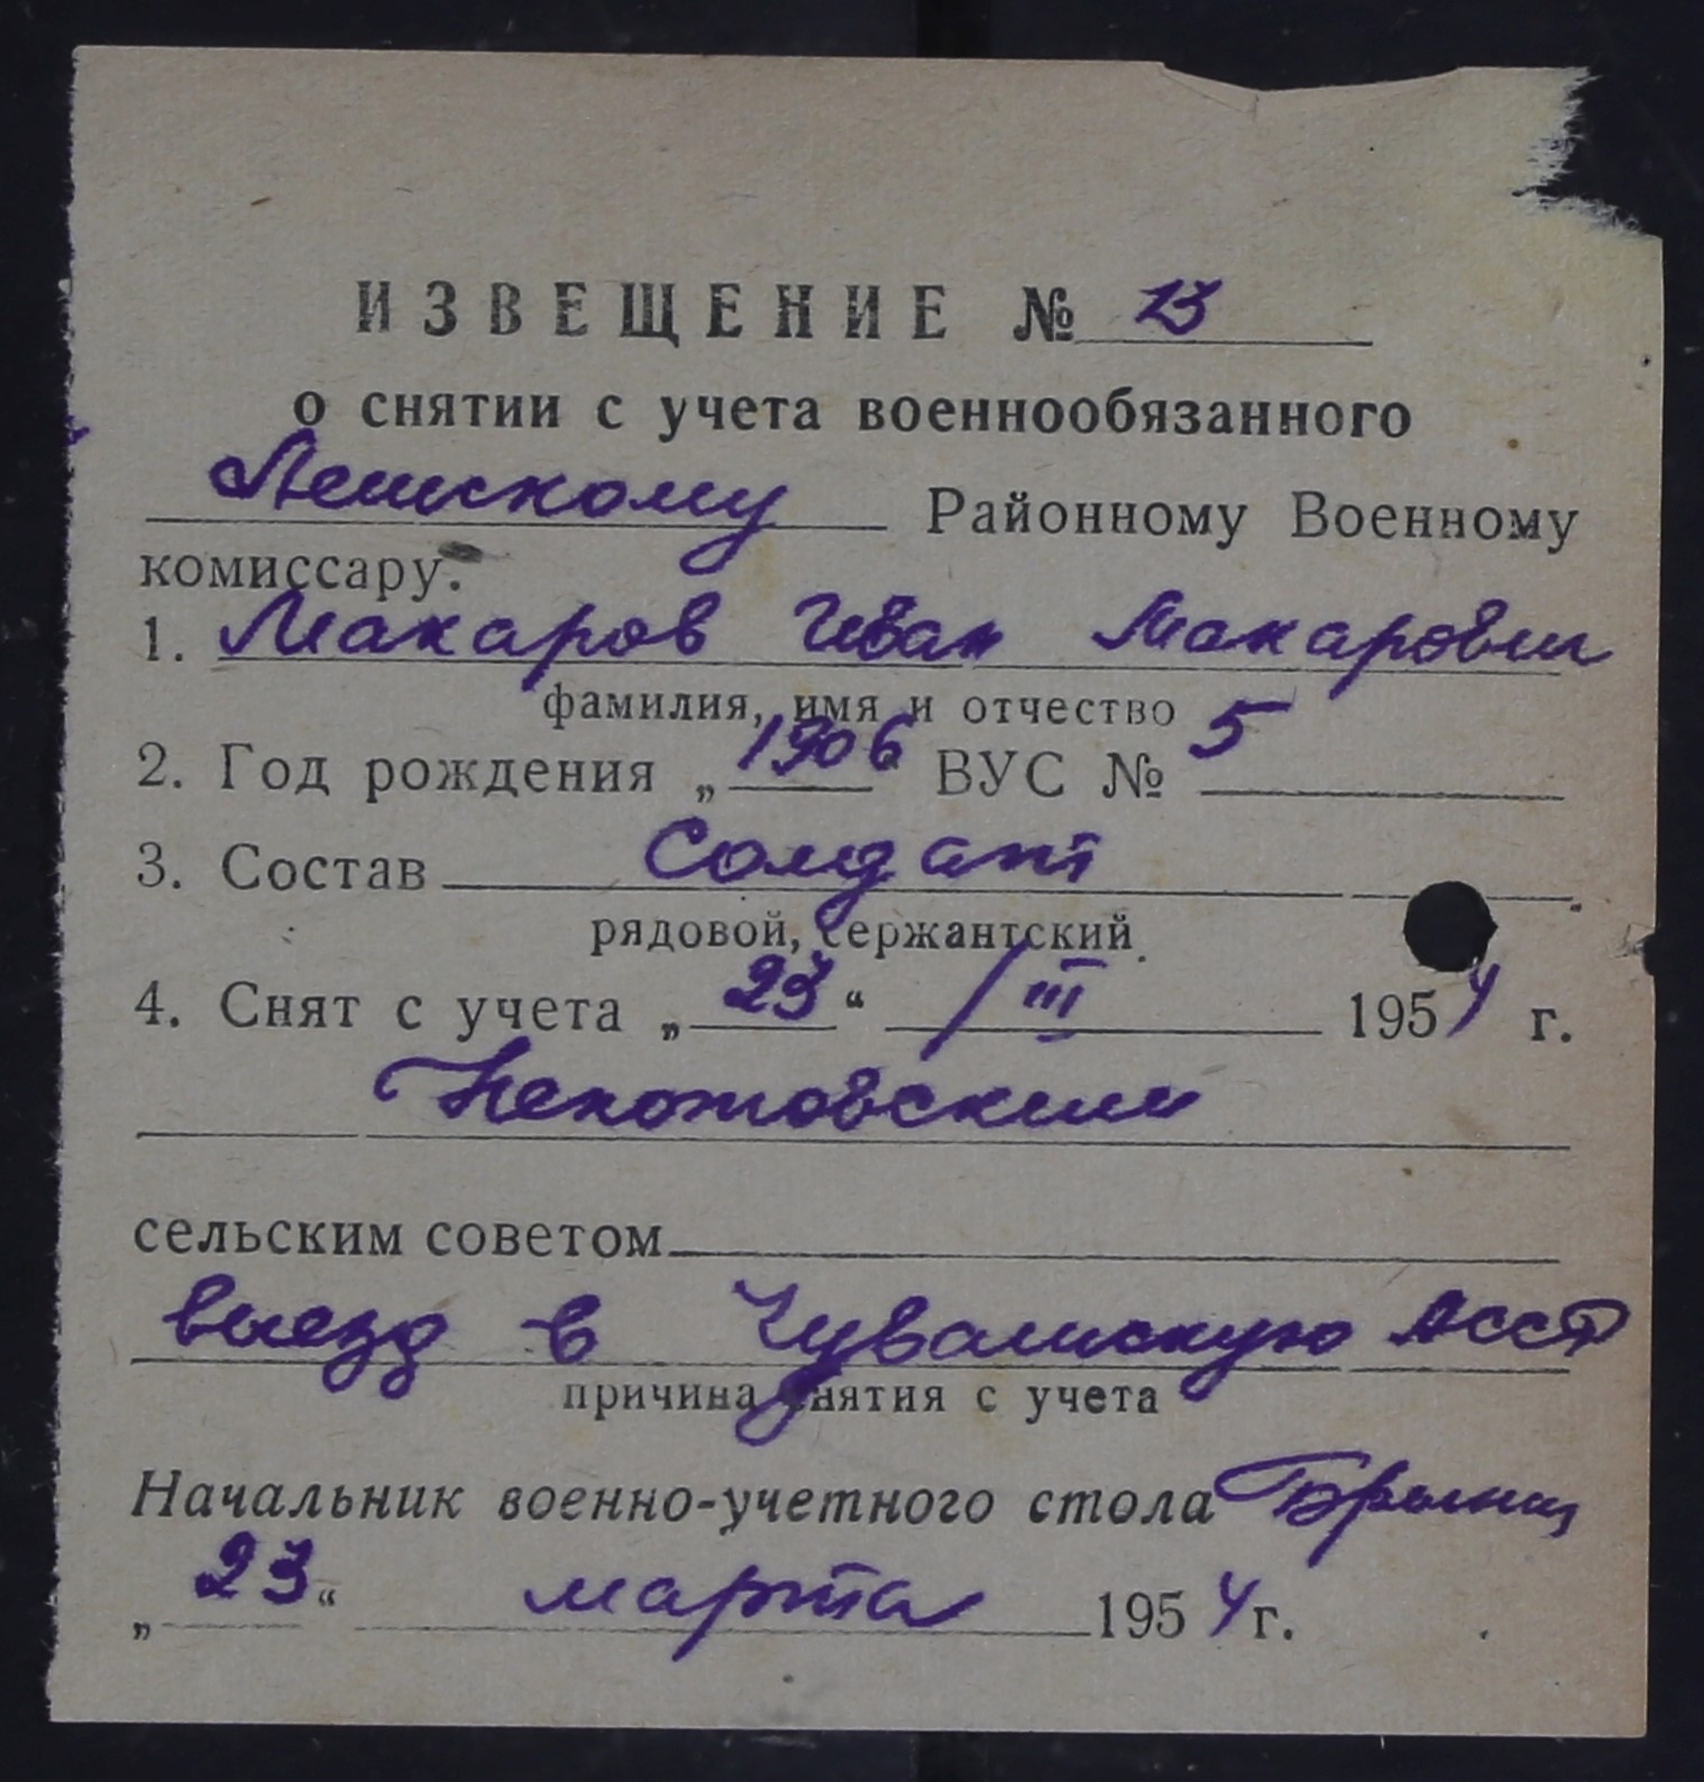 ИЗВЕЩЕНИЕ № 13
о снятии с учета военнообязанного
Лешскому Районному Военному
комиссару.
1. Макаров Иван Макарович
фамилия, имя и отчество
2. Год рождения „1906“ ВУС № 5
3. Состав Солдат
рядовой, сержантский
4. Снят с учета „23“ / III 1954 г.
сельским советом
выезд в Чувашскую АССР
причина снятия с учета
Начальник военно-учетного стола
„23“ марта 1954 г.